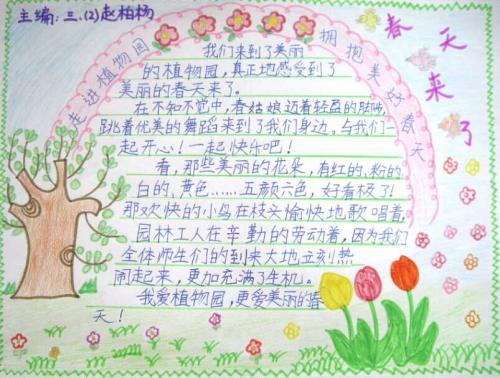 主编:三.(2)赵柏杨
走进植物园
拥抱美好春天
春天来了
我们来到了美丽
的植物园,真正地感受到了
美丽的春天来了。
在不知不觉中,春姑娘迈着轻盈的脚步,
跳着优美的舞蹈来到了我们身边。与我们一
起开心!一起快乐吧!
看,那些美丽的花朵,有红的,粉的
白的、黄色……五颜六色,好看极了!
那欢快的小鸟在枝头愉快地歌唱着,
园林工人在辛勤的劳动着,因为我们
全体师生们的到来大地立刻热
闹起来,更加充满了生机。
我爱植物园,更爱美丽的春
天!